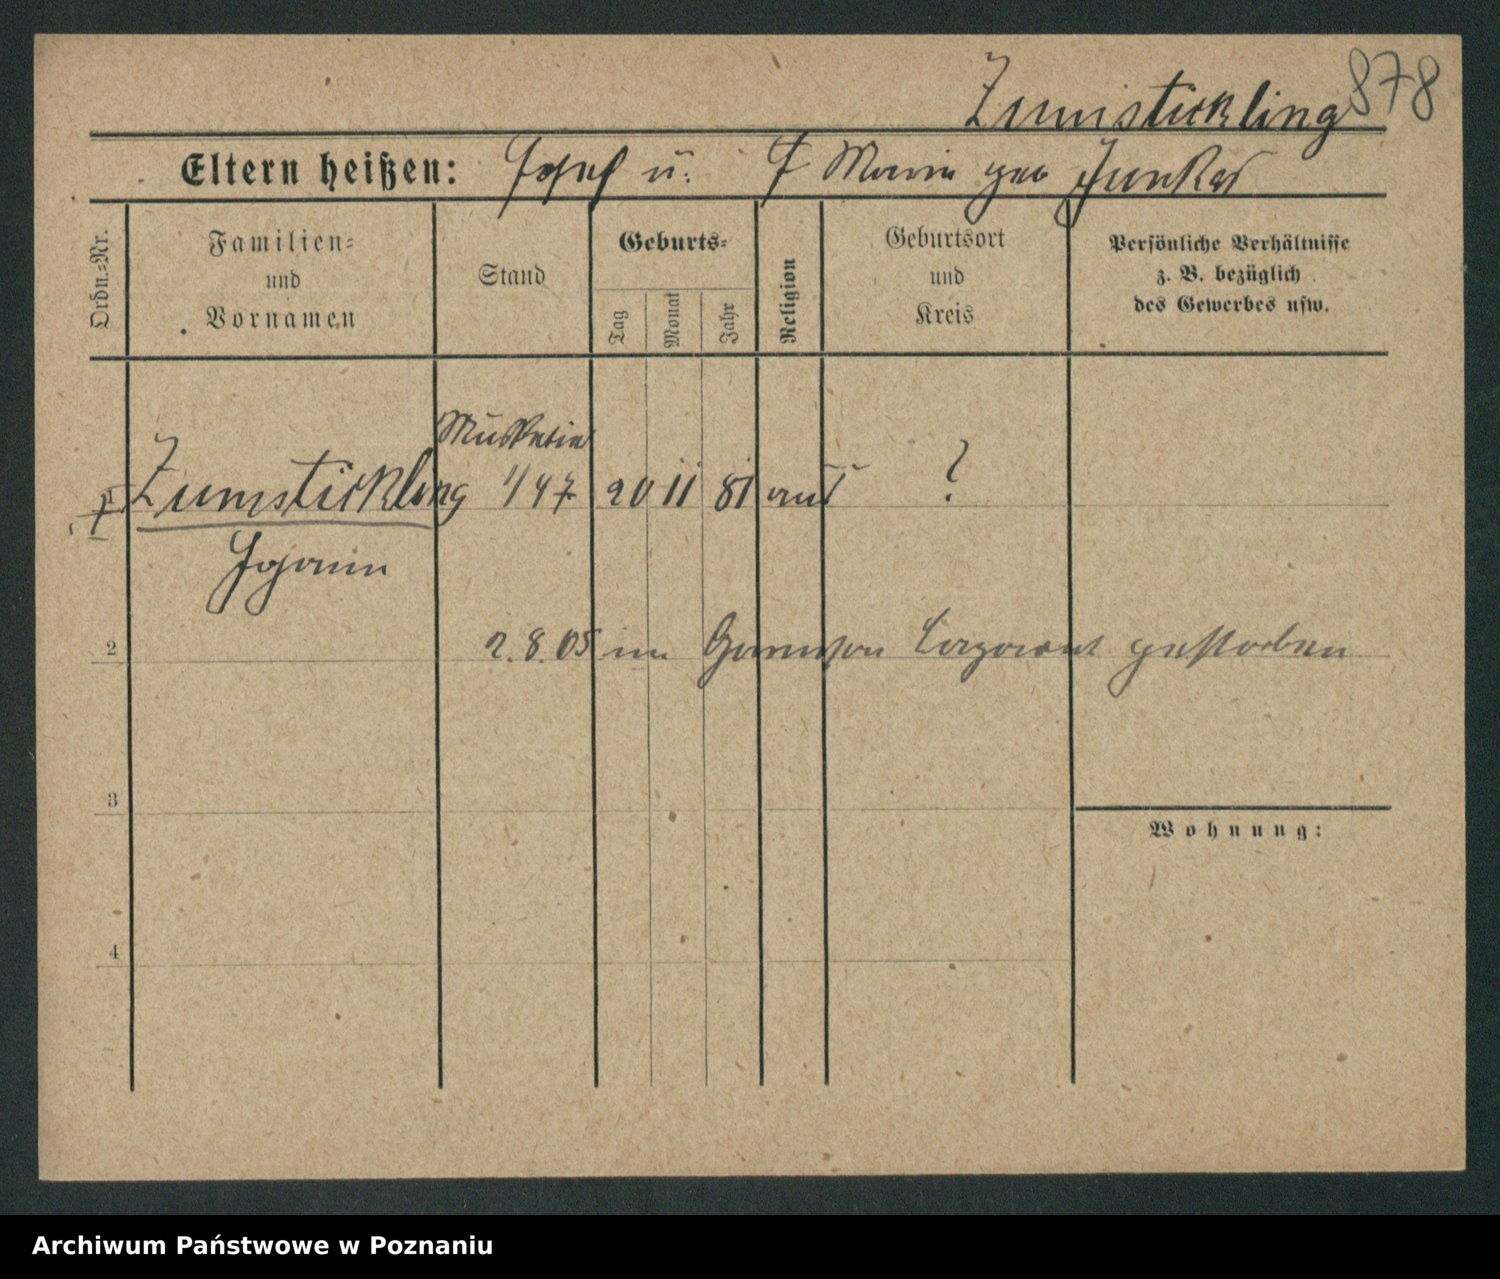 878
Zumstickling
Eltern heißen: Josef u. † Marie geb Junker
Ordn.=Nr.
Familien=
und
Vornamen
Stand
Geburts=
Tag
Monat
Jahr
Religion
Geburtsort
und
Kreis
Persönliche Verhältnisse
z. B. bezüglich
des Gewerbes usw.
Musketier
† Zumstickling 1/47 20 11 81 ?
Johann
2 2.8.05 im Garnison Lazarett gestorben
3
Wohnung:
4
Archiwum Państwowe w Poznaniu